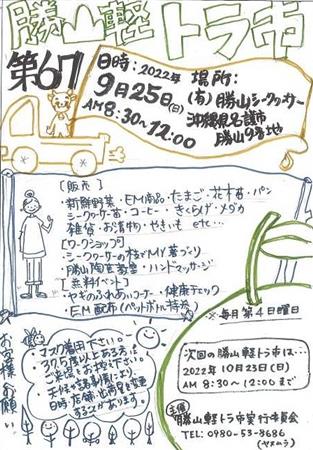 勝山軽トラ市
第67
日時：2022年
9月25日(日)
AM8:30〜12:00
場所：
(有)勝山シークヮーサー
沖縄県名護市
勝山9番地
[販売]
・新鮮野菜・EM商品・たまご・花木苗・パン
シークヮーサー苗・コーヒー・きくらげ・メダカ
雑貨・お漬物・やきいも etc…
[ワークショップ]
・シークヮーサーの枝でMY箸づくり
・勝山陶芸教室・ハンドマッサージ
[無料イベント]
・ヤギのふれあいコーナー・健康チェック
・EM配布(ペットボトル持参)
※毎月第4日曜日
お客様へお願い
マスク着用下さい。
37.5度以上ある方は
ご来場をお控え下さい。
天候や諸事情により
日時・店舗・出店を変更
することがあります。
次回の勝山軽トラ市は…
2022年10月23日(日)
AM8:30〜12:00まで
主催
勝山軽トラ市実行委員会
TEL: 0980-53-8686
(ヤスムラ)